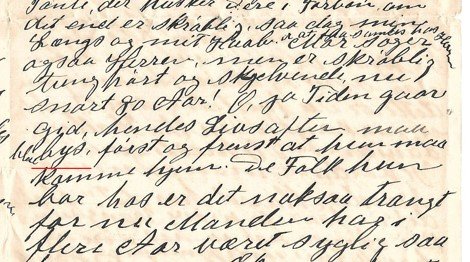 Tante, der husker Dere i Forbön, om
det end er skrøblig, saa dog min
Længs og mit Haab at faa samles hos Ham
Mor søger
ogsaa Herren, men er skrøblig
tunghørt og skjelvende, nu
snart 90 Aar! O, ja Tiden gaar
gid, hendes Livsaften maa
blive
lys, først og fremst at hun maa
komme hjem. De Folk hun
bor hos er det noksaa trangt
for nu Manden har i
flere Aar været syglig saa